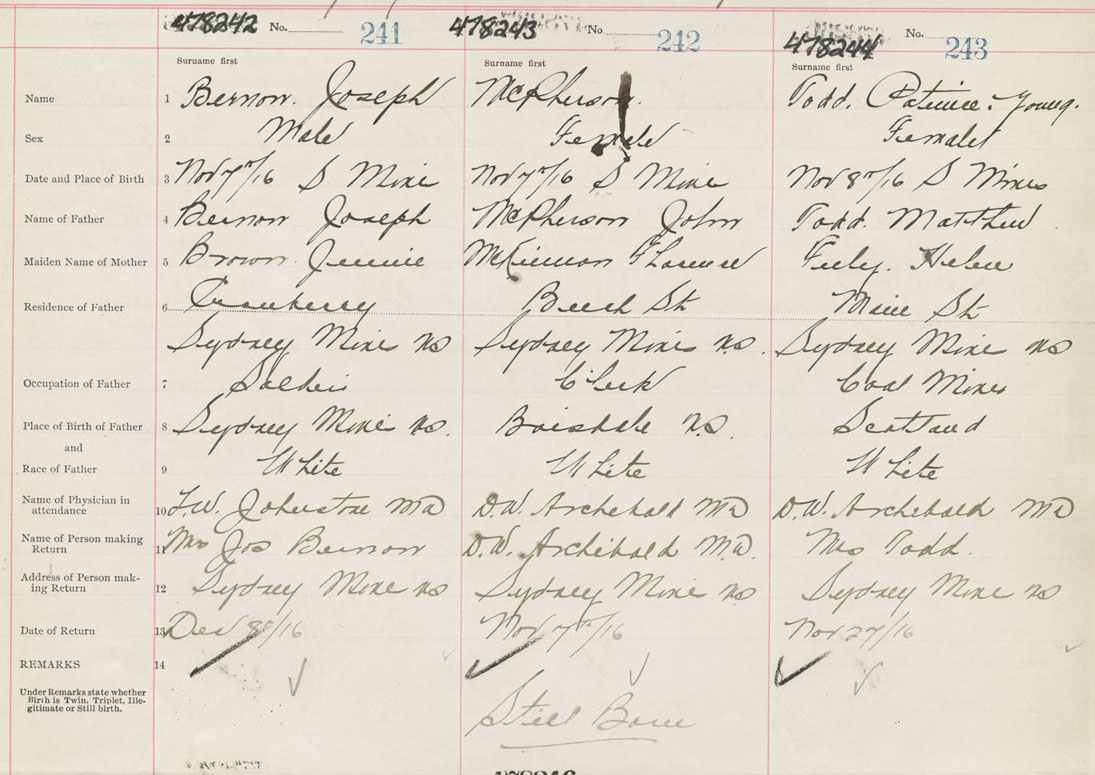 478242 No. 241 478243 No. 242 478244 No. 243
Surname first Surname first Surname first
Name 1 Bernon. Joseph McPherson. Todd. Patience. Young.
Sex 2 Male Female Female
Date and Place of Birth 3 Nov 7th/16 S. Mine Nov 7th/16 S Mine Nov 8th/16 S Mines
Name of Father 4 Bernon Joseph McPherson John Todd. Matthew
Maiden Name of Mother 5 Brown. Jennie McKinnon Florence Helen
Residence of Father 6 Cranberry Beech St. Main St.
Sydney Mine NS Sydney Mines N.S. Sydney Mine NS
Occupation of Father 7 Soldier Clerk Coal Miner
Place of Birth of Father 8 Sydney Mine NS. Boisdale N.S. Scotland
and
Race of Father 9 White White White
Name of Physician in
attendance 10 Johnstone MD D.W. Archibald MD D.W. Archibald MD
Name of Person making
Return 11 Mrs Jos Bernon D.W. Archibald M.D. Mrs Todd.
Address of Person mak-
ing Return 12 Sydney Mine NS Sydney Mine NS Sydney Mine NS
Date of Return 13 Dec 8th/16 Nov 7th/16 Nov 27/16
REMARKS 14
Under Remarks state whether
Birth is Twin, Triplet, Ille-
gitimate or Still birth.
Still Born